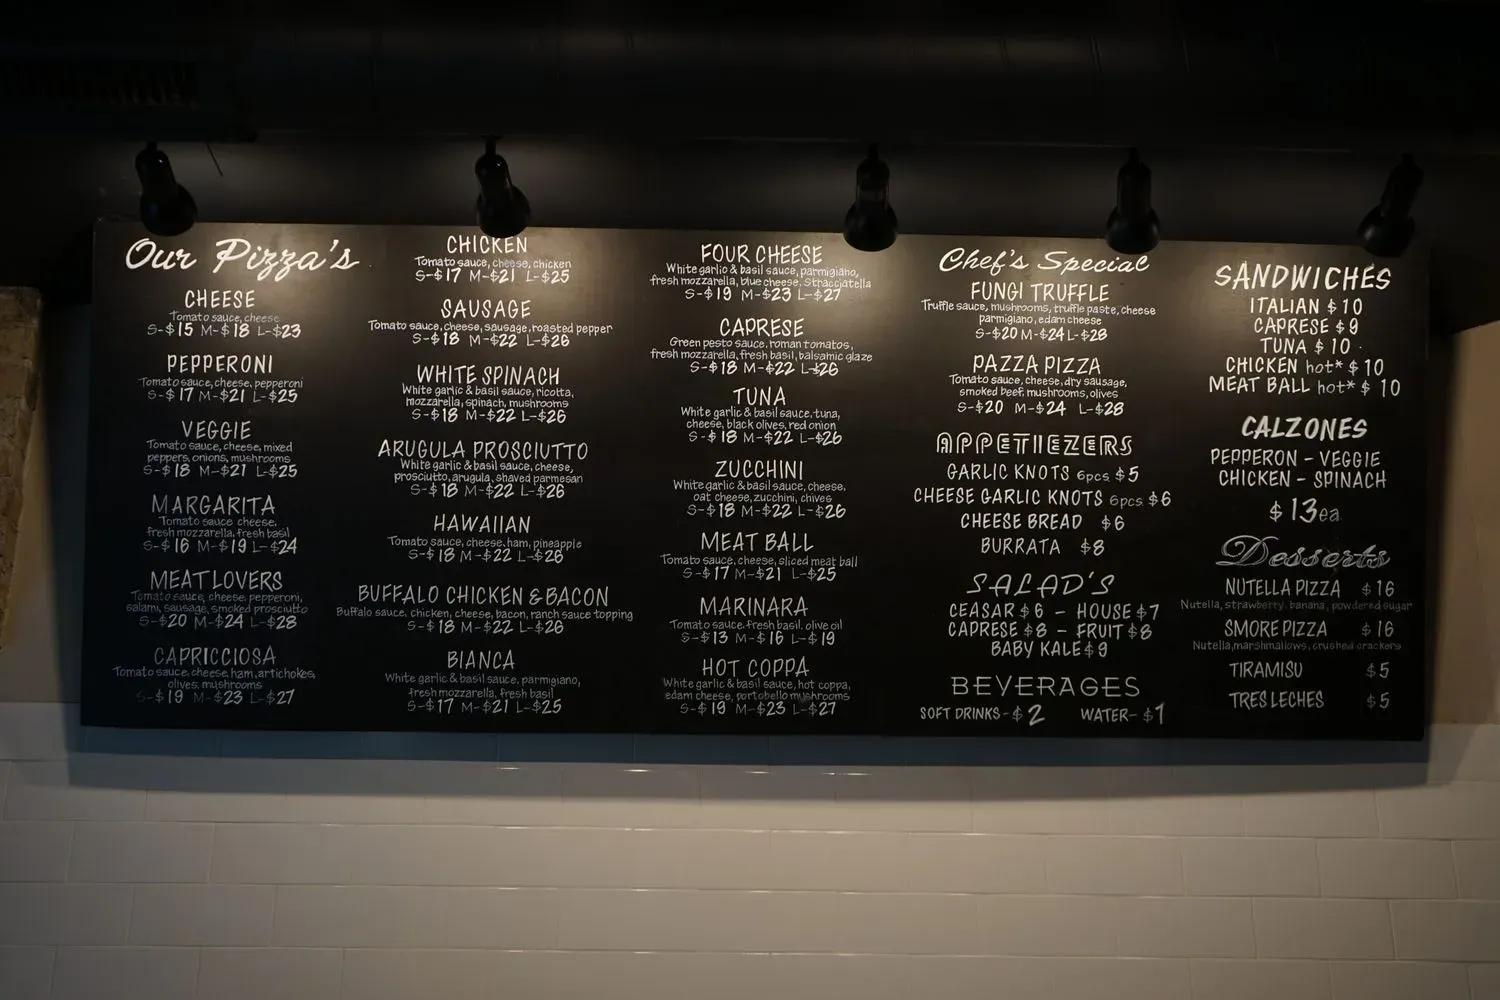 Our Pizza's
CHEESE
Tomato sauce, cheese
S-$15 M-$18 L-$23
PEPPERONI
Tomato sauce, cheese, pepperoni
S-$17 M-$21 L-$25
VEGGIE
Tomato sauce, cheese, mixed
peppers, onions, mushrooms
S-$18 M-$21 L-$25
MARGARITA
Tomato sauce cheese,
fresh mozzarella, fresh basil
S-$16 M-$19 L-$24
MEAT LOVERS
Tomato sauce, cheese, pepperoni,
salami, sausage, smoked prosciutto
S-$20 M-$24 L-$28
CAPRICCIOSA
Tomato sauce, cheese, ham, artichokes,
olives, mushrooms
S-$19 M-$23 L-$27
CHICKEN
Tomato sauce, cheese, chicken
S-$17 M-$21 L-$25
SAUSAGE
Tomato sauce, cheese, sausage, roasted pepper
S-$18 M-$22 L-$26
WHITE SPINACH
White garlic & basil sauce, ricotta,
mozzarella, spinach, mushrooms
S-$18 M-$22 L-$26
ARUGULA PROSCIUTTO
White garlic & basil sauce, cheese,
prosciutto, arugula, shaved parmesan
S-$18 M-$22 L-$26
HAWAIIAN
Tomato sauce, cheese, ham, pineapple
S-$18 M-$22 L-$26
BUFFALO CHICKEN & BACON
Buffalo sauce, chicken, cheese, bacon, ranch sauce topping
S-$18 M-$22 L-$26
BIANCA
White garlic & basil sauce, parmigiano,
fresh mozzarella, fresh basil
S-$17 M-$21 L-$25
FOUR CHEESE
White garlic & basil sauce, parmigiano,
fresh mozzarella, blue cheese, Stracciatella
S-$19 M-$23 L-$27
CAPRESE
Green pesto sauce, roman tomatos,
fresh mozzarella, fresh basil, balsamic glaze
S-$18 M-$22 L-$26
TUNA
White garlic & basil sauce, tuna,
cheese, black olives, red onion
S-$18 M-$22 L-$26
ZUCCHINI
White garlic & basil sauce, cheese,
oat cheese, zucchini, chives
S-$18 M-$22 L-$26
MEAT BALL
Tomato sauce, cheese, sliced meat ball
S-$17 M-$21 L-$25
MARINARA
Tomato sauce, fresh basil, olive oil
S-$13 M-$16 L-$19
HOT COPPA
White garlic & basil sauce, hot coppa,
edam cheese, portobello mushrooms
S-$19 M-$23 L-$27
Chef's Special
FUNGI TRUFFLE
Truffle sauce, mushrooms, truffle paste, cheese
parmigiano, edam cheese
S-$20 M-$24 L-$28
PAZZA PIZZA
Tomato sauce, cheese, dry sausage,
smoked beef, mushrooms, olives
S-$20 M-$24 L-$28
APPETIEZERS
GARLIC KNOTS 6pcs $5
CHEESE GARLIC KNOTS 6pcs $6
CHEESE BREAD $6
BURRATA $8
SALAD'S
CEASAR $6 - HOUSE $7
CAPRESE $8 - FRUIT $8
BABY KALE $9
BEVERAGES
SOFT DRINKS-$2 WATER-$1
SANDWICHES
ITALIAN $10
CAPRESE $9
TUNA $10
CHICKEN hot* $10
MEAT BALL hot* $10
CALZONES
PEPPERON - VEGGIE
CHICKEN - SPINACH
$13ea
Desserts
NUTELLA PIZZA $16
Nutella, strawberry, banana, powdered sugar
SMORE PIZZA $16
Nutella, marshmallows, crushed crackers
TIRAMISU $5
TRES LECHES $5